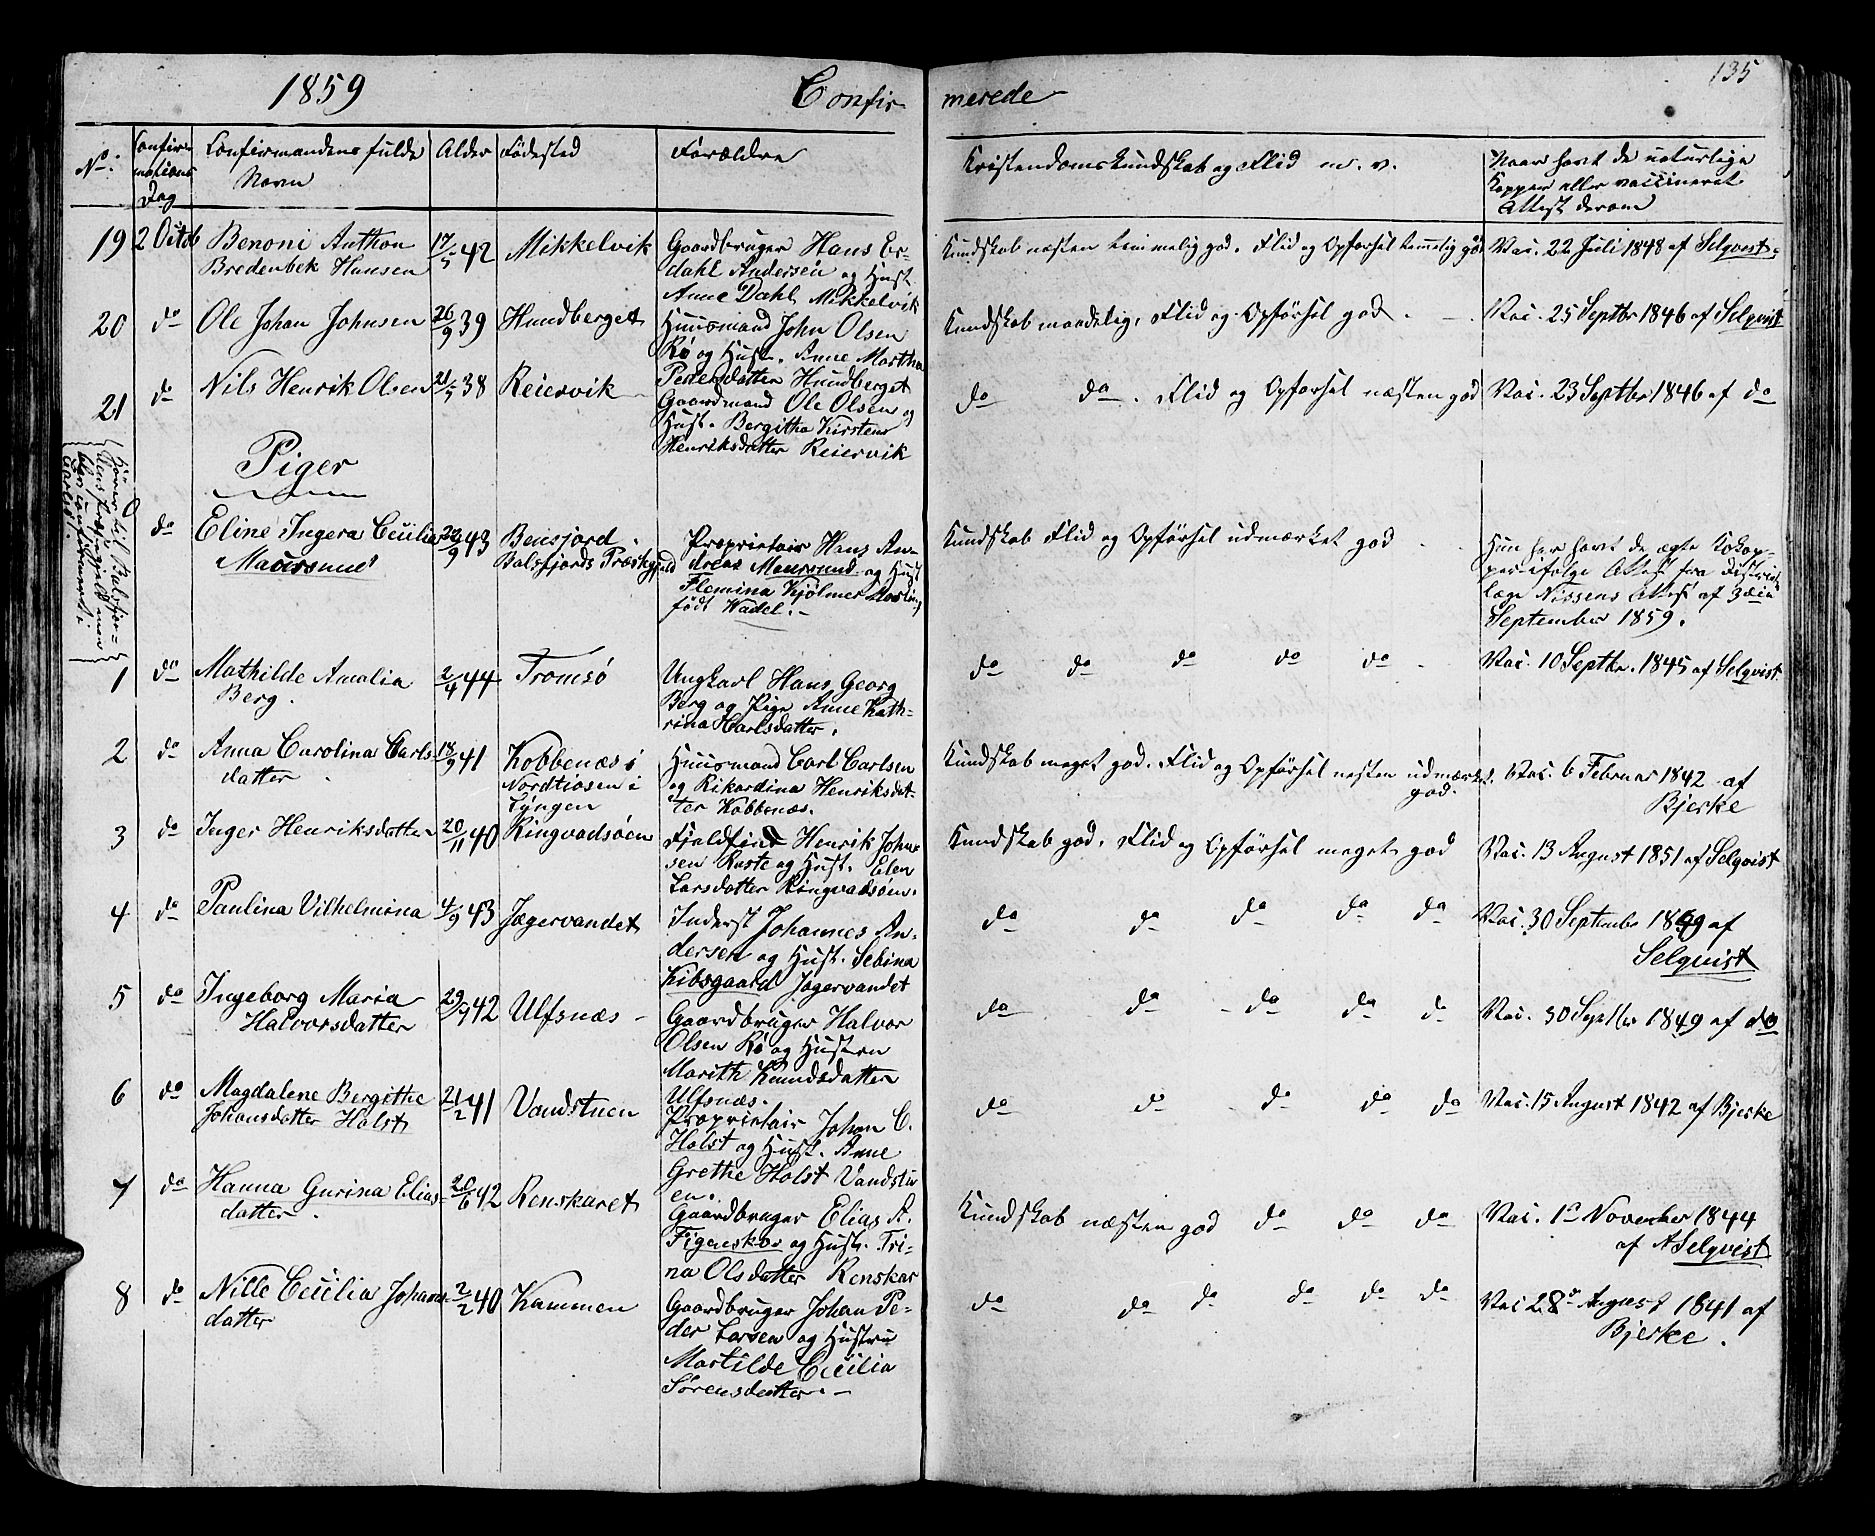 135
1859 Confir- merede
No:
Confir-
mations
Dag
Confirmandens fulde
Navn
Alder
Fødested
Forældre
Kristendomskundskab og Flid m. v.
Naar havt de naturlige
Kopper eller vaccineret
Attest derom
19 2 Octob Benoni Anthon 17/5 42 Mikkelvik Gaardbruger Hans Er- Kundskab næsten temmelig god. Flid og Opførsel temmelig god Vac. 22 Juli 1848 af Selqvist
Bredenbek Hansen dahl Andersen og Hust.
Anne Dahl Mikkelvik
20 do Ole Johan Johnsen 26/9 39 Hundberget Huusmand John Olsen Kundskab maadelig, Flid og Opførsel god. Vac. 25 Septbr 1846 af Selqvist
Rø og Hust. Anne Martha
Pedersdatter Hundberget
21 do Nils Henrik Olsen 21/5 38 Reiervik Gaardmand Ole Olsen og do do. Flid og Opførsel næsten god Vac. 23 Septbr 1846 af do
Hust. Bergitha Kirstens
Henriksdatter Reiervik
Piger
Hører til Balsfjor-
dens Præstegjeld men
blev confirmeret i
Carlsø.
0 do Eline Ingera Cecilia 22/9 43 Bensjord Proprietair Hans An- Kundskab Flid og Opførsel udmærket god Hun har havt de ægte Kokop-
Maursund Balsfjords Præstegjeld dreas Maursund og Hust. per ifølge Attest fra Distrikts
Flemina Kjølmer læge Nissens Attest af 3die
født Wadel. September 1859.
1 do Mathilde Amalia 2/4 44 Tromsø Ungkarl Hans Georg do do do do do Vac. 10 Septbr. 1845 af Selqvist
Berg. Berg og Pige Anne Kath-
rina Carlsdatter.
2 do Anna Carolina Carls 18/9 41 Kobbenæs i Huusmand Carl Carlsen Kundskab meget god. Flid og Opførsel næsten udmærket Vac. 6 Februar 1842 af
datter. Nordtiosen i og Rikardina Henriksdat- god. Bjerke
Lyngen ter Kobbenæs.
3 do Inger Henriksdatter 20/11 40 Ringvadsøen Fjeldfind Henrik Johan- Kundskab god. Flid og Opførsel meget god Vac. 13 August 1851 af Selqvist
sen Raste og Hust. Elen
Larsdatter Ringvadsøen.
4 do Paulina Vilhelmina 4/9 43 Jægervandet Inderst Johannes An- do do do do do Vac. 30 September 1849 af
dersen og Hust. Sebina Selqvist
Kibsgaard Jægervandet
5 do Ingeborg Maria 29/7 42 Ulfsnæs Gaardbruger Halvor do do do do do Vac. 30 Septbr 1849 af do
Halvorsdatter Olsen Rø og Hustru
Marith Knudsdatter
Ulfsnæs.
6 do Magdalene Bergithe 21/2 41 Vandstuen Proprietair Johan C. do do do do do Vac. 15 August 1842 af Bjerke
Johansdatter Holst Holst og Hust. Anne
Grethe Holst Vandstu
en.
7 do Hanna Gurina Elias- 20/6 42 Renskaret Gaardbruger Elias A. Kundskab næsten god do do do Vac. 1e November 1844
datter. Figenskov og Hust. Tri- af A Selqvist
na Olsdatter Renskar
8 do Nille Cecilia Johans- 2/2 40 Kammen Gaardbruger Johan Pe- do do do do do do Vac 28e August 1841 af
datter der Larsen og Hustru Bjerke.
Martilde Cecilia
Sørensdatter.